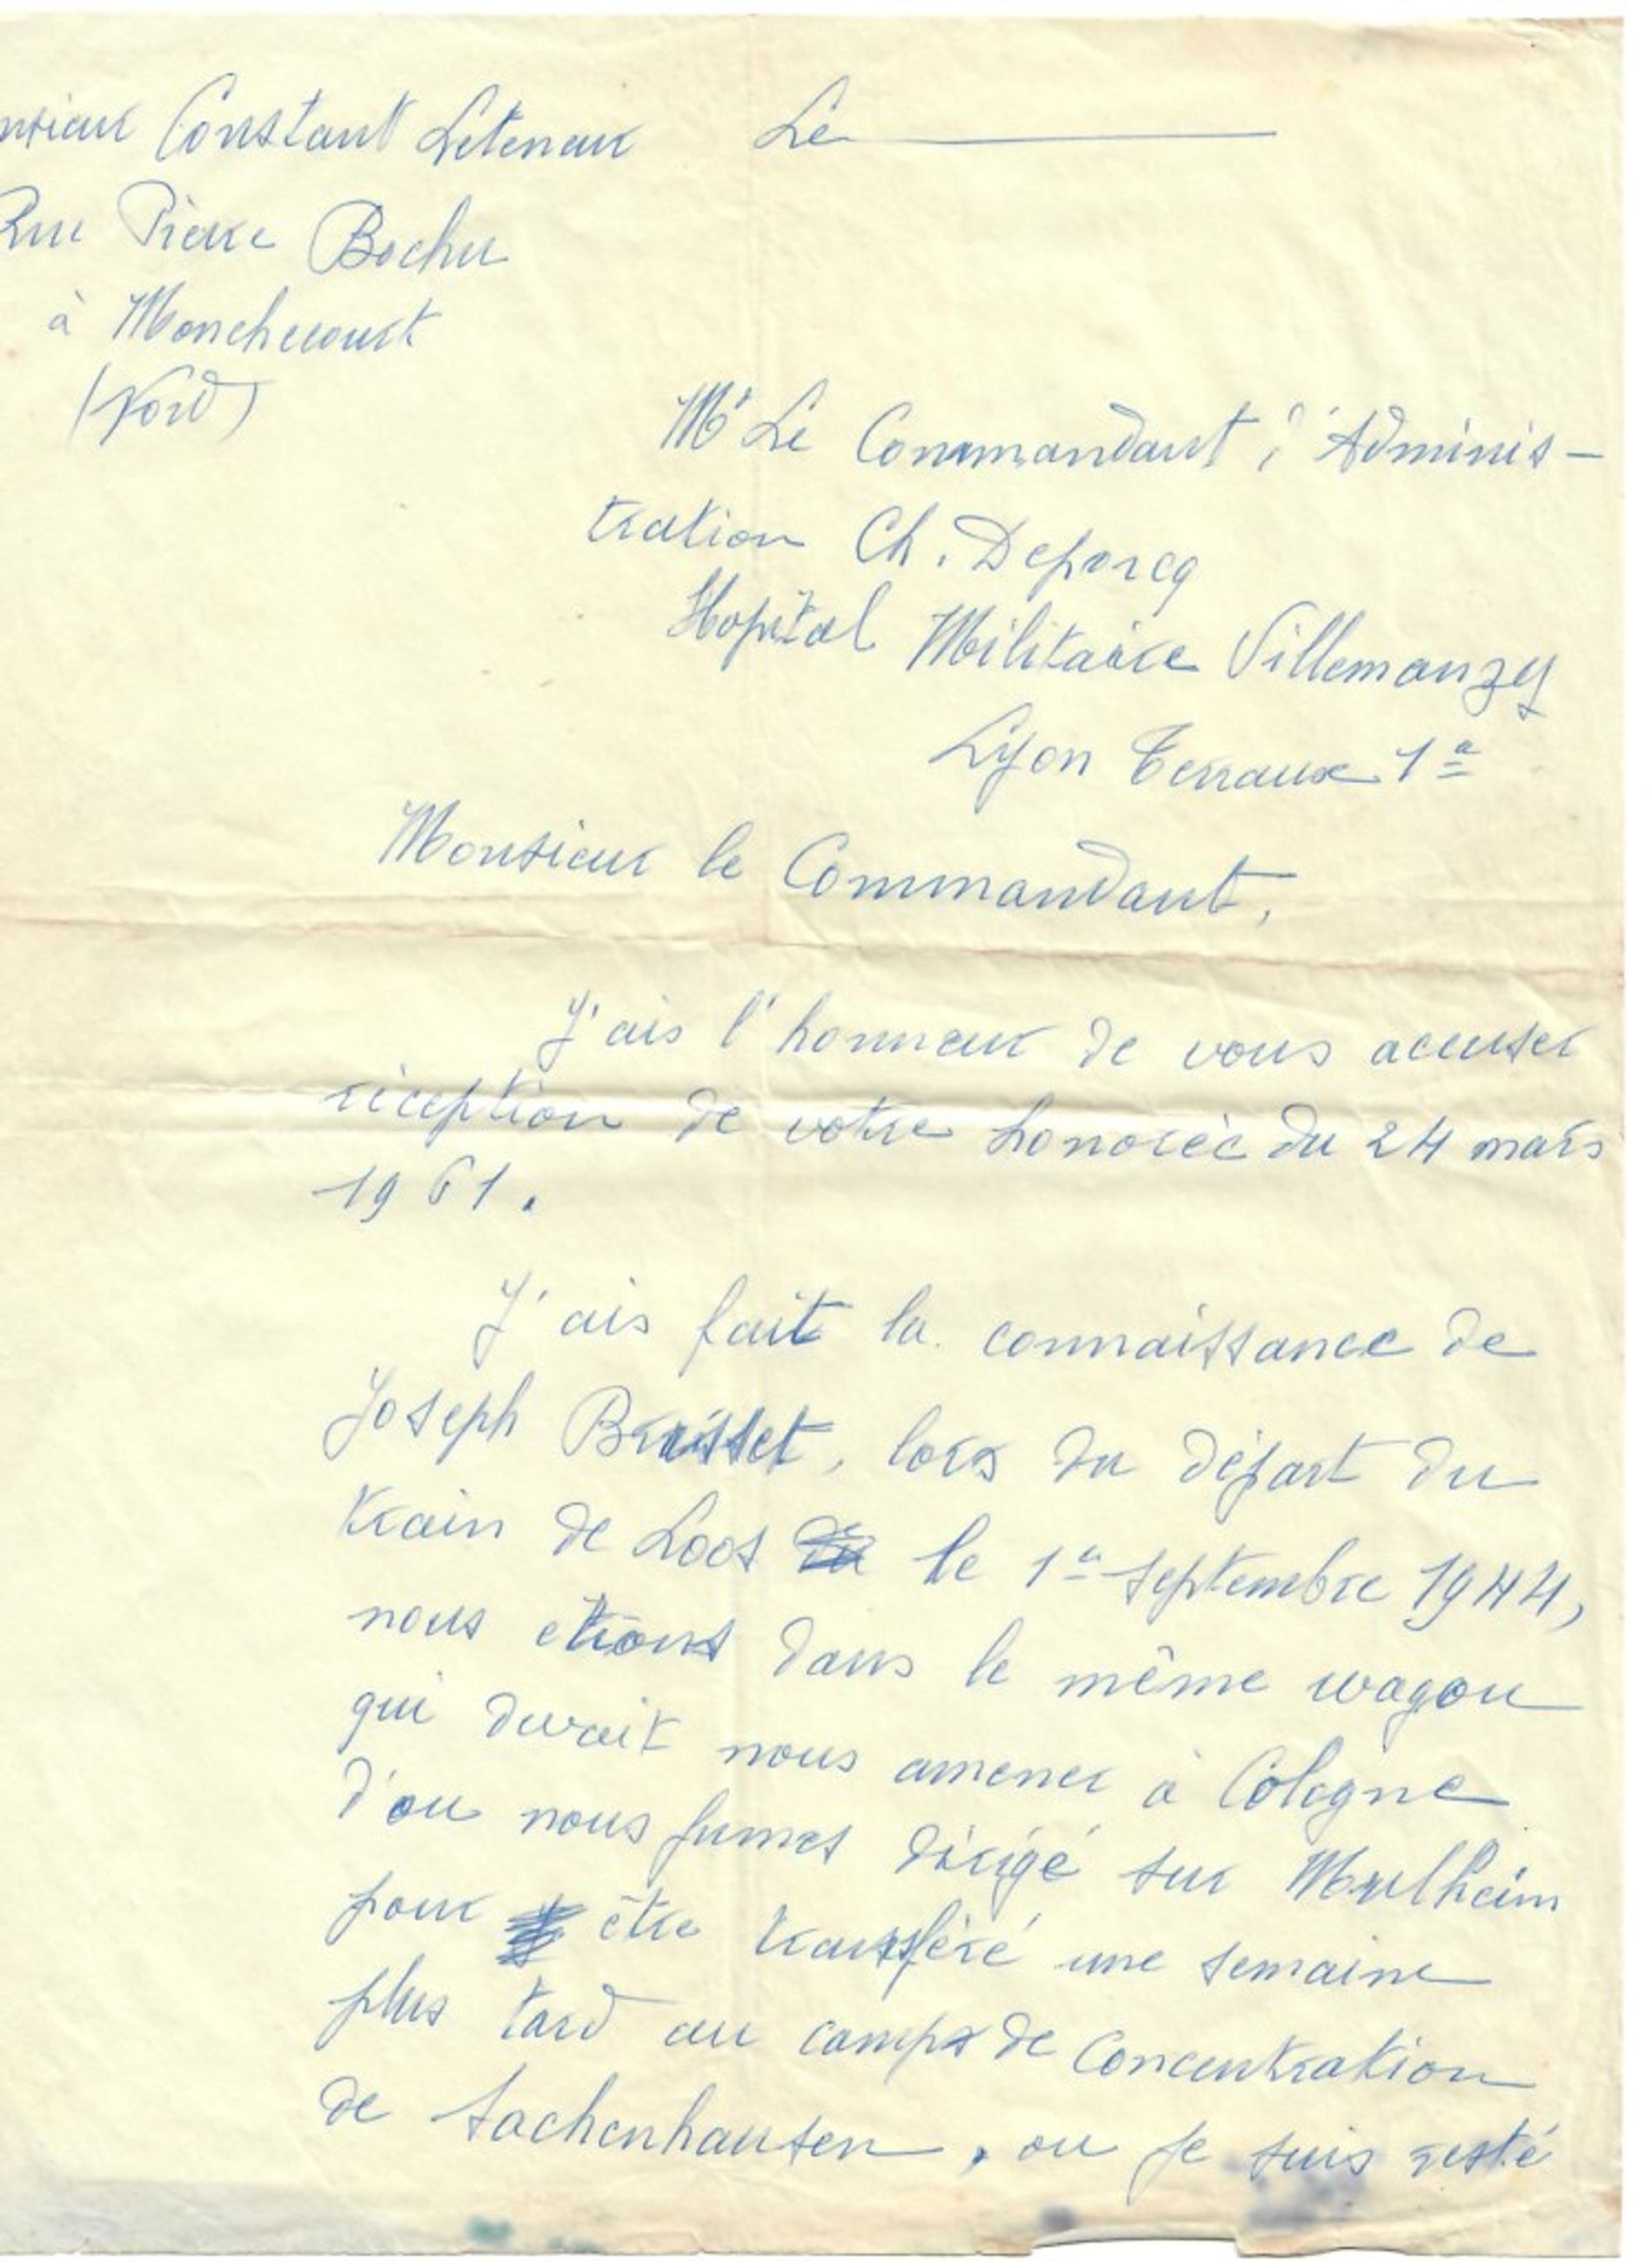 nsieur Constant Leteneur Le
Rue Pierre Bochu
à Monchecourt
(Nord)
Mr Le Commandant d'Adminis-
tration Ch. Deporcq
Hopital Militaire Villemanzy
Lyon Terraux 1er
Monsieur le Commandant,
J'ais l'honneur de vous accuser
réception de votre honorée du 24 mars
1961.
J'ais fait la connaissance de
Joseph Brisset, lors du départ du
train de Loos le 1er septembre 1944,
nous etions dans le même wagon
qui devait nous amener à Cologne
d'ou nous fumes dirigé sur Mulheim
pour être transféré une semaine
plus tard au camps de Concentration
de Sachenhausen, ou je suis resté